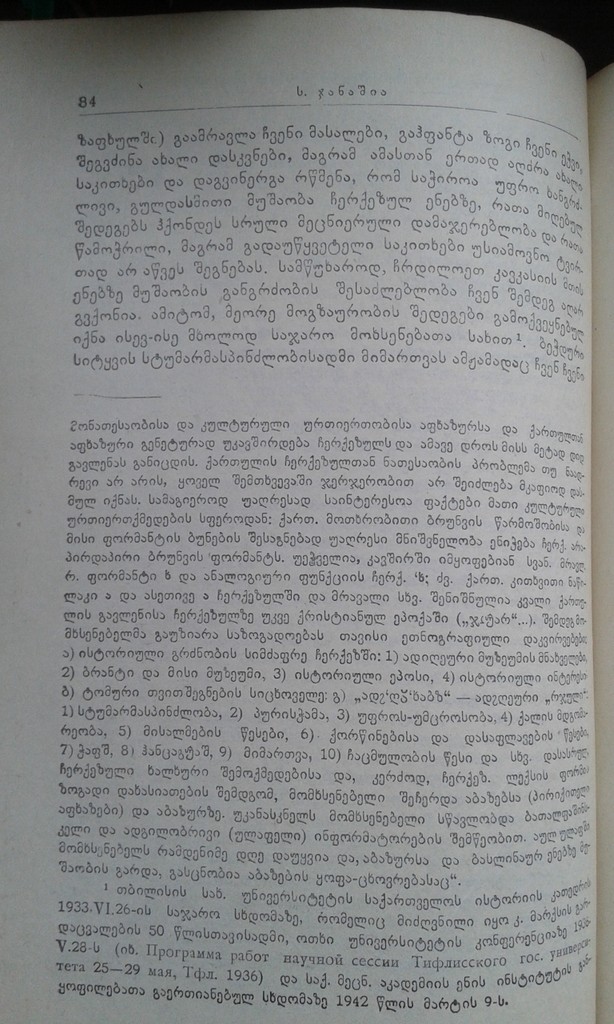 84
ს. ჯანაშია
ზაფხულში) გაამრავლა ჩვენი მასალები, გაჰფანტა ზოგი ჩვენი ეჭვი,
შეგვძინა ახალი დასკვნები, მაგრამ ამასთან ერთად აღძრა ახალი
საკითხები და დაგვინერგა რწმენა, რომ საჭიროა უფრო ხანგრძ-
ლივი, გულდასმითი მუშაობა ჩერქეზულ ენებზე, რათა მიღებულ
შედეგებს ჰქონდეს სრული მეცნიერული დამაჯერებლობა და რათა
წამოჭრილი, მაგრამ გადაუწყვეტელი საკითხები უსიამოვნო ტვირ-
თად არ აწვეს შეგნებას. სამწუხაროდ, ჩრდილოეთ კავკასიის მთის
ენებზე მუშაობის განგრძობის შესაძლებლობა ჩვენ შემდეგ აღარ
გვქონია. ამიტომ, მეორე მოგზაურობის შედეგები გამოქვეყნებულ
იქნა ისევ-ისე მხოლოდ საჯარო მოხსენებათა სახით¹. ბეჭდური
სიტყვის სტუმარმასპინძლობისადმი მიმართვას ამჟამადაც ჩვენ ჩვენი
მონათესაობისა და კულტურული ურთიერთობისა აფხაზურსა და ქართულთან
აფხაზური გენეტურად უკავშირდება ჩერქეზულს და ამავე დროს მისს მეტად დიდ
გავლენას განიცდის. ქართულის ჩერქეზულთან ნათესაობის პრობლემა თუ
რევი არ არის, ყოველ შემთხვევაში ჯერჯერობით არ შეიძლება მკაფიოდ დას-
მულ იქნას. სამაგიეროდ უაღრესად საინტერესოა ფაქტები მათი კულტურული
ურთიერთქმედების სფეროდან: ქართ. მოთხრობითი ბრუნვის წარმოშობისა და
მისი ფორმანტის ბუნების შესაგნებად უაღრესი მნიშვნელობა ენიჭება ჩერქ. არა-
პირდაპირი ბრუნვის ფორმანტს. უეჭველია, კავშირში იმყოფებიან სვან. მრავლ.
რ. ფორმანტი ხ და ანალოგიური ფუნქციის ჩერქ. ძვ. ქართ. კითხვითი ნაწი-
ლაკი ა და ასეთივე ა ჩერქეზულში და მრავალი სხვ. შენიშნულია კვალი ქართუ-
ლის გავლენისა ჩერქეზულზე უკვე ქრისტიანულ ეპოქაში („ჯუარ“...). შემდეგ მო-
მხსენებელმა გაუზიარა საზოგადოებას თავისი ეთნოგრაფიული დაკვირვებები:
ა) ისტორიული გრძნობის სიმძაფრე ჩერქეზში: 1) ადიღეური მუზეუმის მნახველები,
2) ბრანტი და მისი მუზეუმი, 3) ისტორიული ეპოსი, 4) ისტორიული ინტერესი
ბ) ტომური თვითშეგნების სიცხოველე: გ) — ადიღეური „რჯული“:
1) სტუმარმასპინძლობა, 2) პურისჭამა, 3) უფროს-უმცროსობა, 4) ქალის მდგომა-
რეობა, 5) მისალმების წესები, 6) ქორწინებისა და დასაფლავების წესები,
7) ჭაფშ, 8) ჰანცაგუაშ, 9) მიმართვა, 10) ჩაცმულობის წესი და სხვ. დასასრულ
ჩერქეზული ხალხური შემოქმედებისა და, კერძოდ, ჩერქეზ. ლექსის ფორმის
ზოგადი დახასიათების შემდგომ, მომხსენებელი შეჩერდა აბაზებსა (პირიქითელი
აფხაზები) და აბაზურზე. უკანასკნელს მომხსენებელი სწავლობდა ბათალფაშინს-
კელი და ადგილობრივი (ულაფელი) ინფორმატორების შემწეობით. აულ ულაფში
მომხსენებელს რამდენიმე დღე დაუყვია და, აბაზურსა და ბასლინაურ ენებზე მუ-
შაობის გარდა, გასცნობია აბაზების ყოფა-ცხოვრებასაც“.
¹ თბილისის სახ. უნივერსიტეტის საქართველოს ისტორიის კათედრის
1933.VI.26-ის საჯარო სხდომაზე, რომელიც მიძღვნილი იყო კ. მარქსის გარ-
დაცვალების 50 წლისთავისადმი, ოთხი უნივერსიტეტის კონფერენციაზე 1936-
V.28-ს (იხ. Программа работ научной сессии Тифлисского гос. универси-
тета 25—29 мая, Тфл. 1936) და საქ. მეცნ. აკადემიის ენის ინსტიტუტის გან-
ყოფილებათა გაერთიანებულ სხდომაზე 1942 წლის მარტის 9-ს.